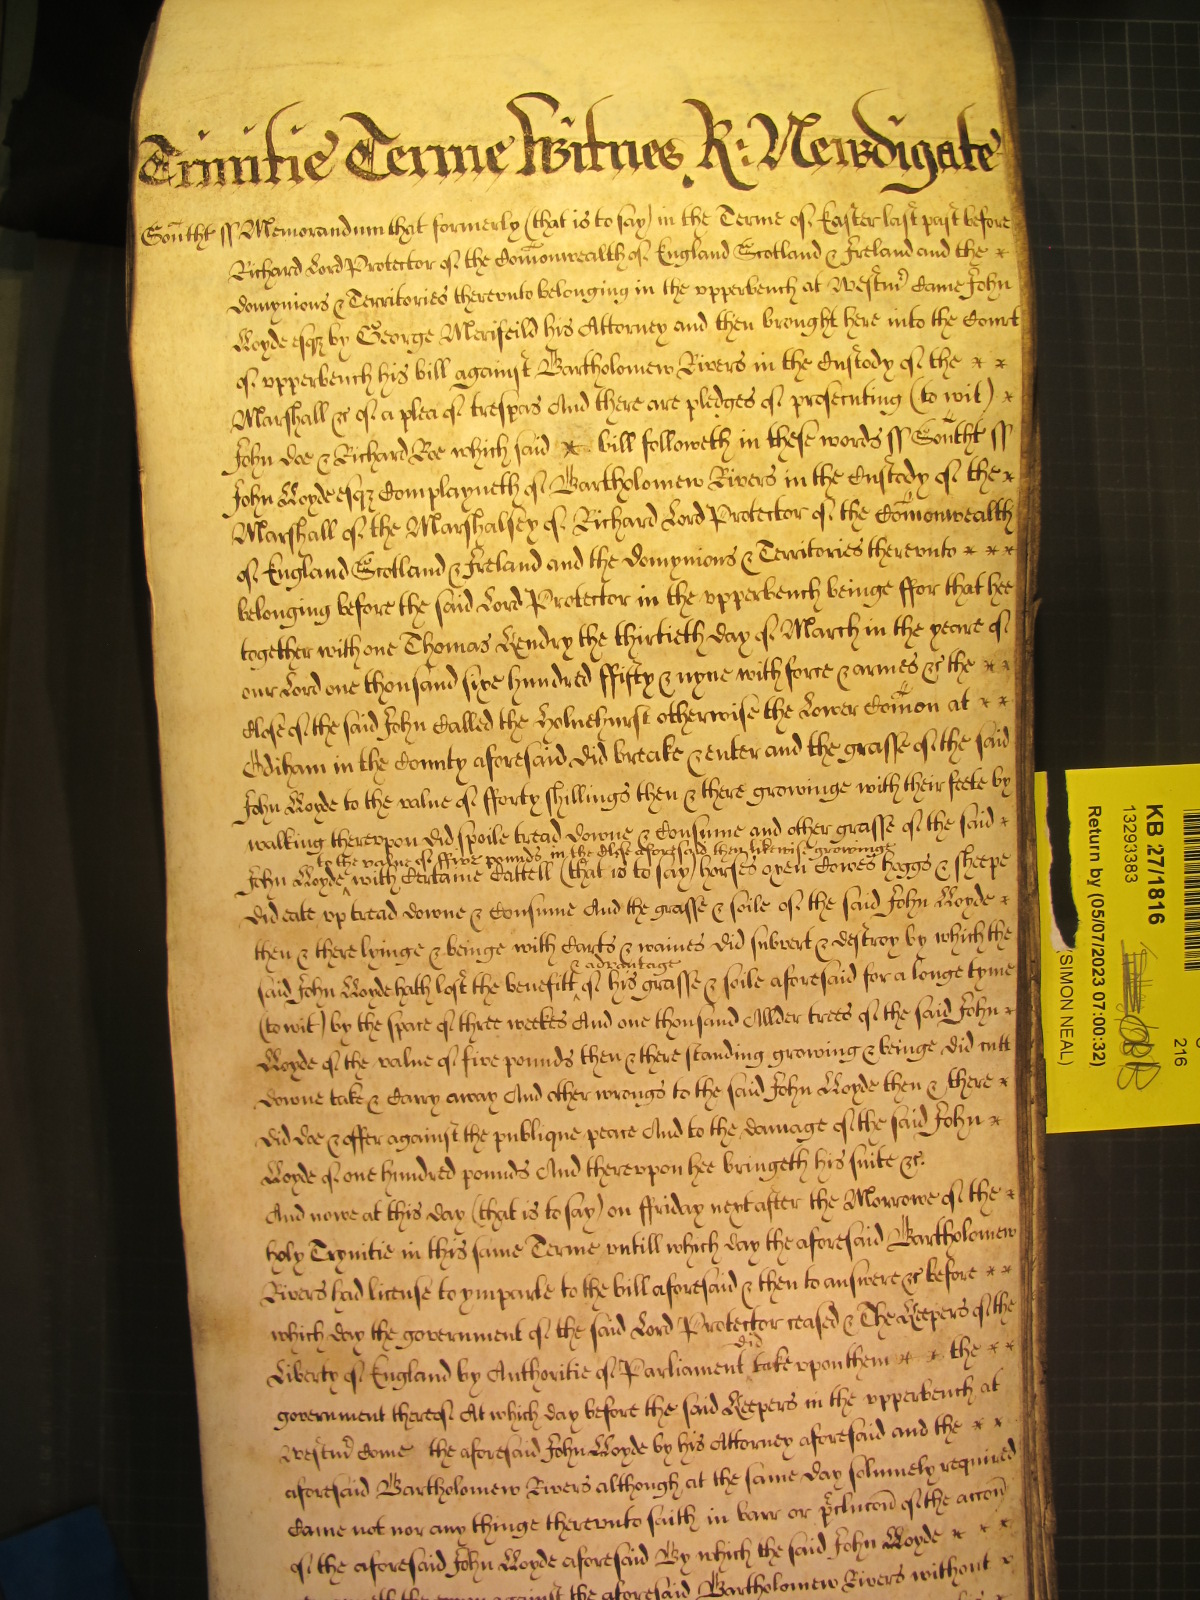 Trinitie Terme Witnes R: Newdigate
Southt ss Memorandum that formerly (that is to say) in the Terme of Easter last past before
Richard Lord Protector of the Comonwealth of England Scotland & Ireland and the
domynions & Territories therevnto belonging in the vpperbench at Westmr Came John
Lloyde esqr by George Merifeild his Attorney and then brought here into the Court
of vpperbench his bill against Bartholomew Rivers in the Custody of the
Marshall &c of a plea of trespas And there are pledges of prosecuting (to wit)
John Doe & Richard Roe which said bill followeth in these words ss Southt ss
John Lloyde esqr Complayneth of Bartholomew Rivers in the Custody of the
Marshall of the Marshalsey of Richard Lord Protector of the Comonwealth
of England Scotland & Ireland and the domynions & Territories therevnto
belonging before the said Lord Protector in the vpperbench beinge ffor that hee
together with one Thomas Hendry the thirtieth day of March in the yeare of
our Lord one thousand sixe hundred ffifty & nyne with force & armes &c the
Close of the said John Called the Holnehurst otherwise the Lower Comon at
Odiham in the County aforesaid did breake & enter and the grasse of the said
John Lloyde to the value of fforty shillings then & there growinge with their feete by
walking therevpon did spoile tread downe & Consume and other grasse of the said
to the value of ffive pounds in the Close aforesaid then likewise growinge
John Lloyde with Certaine Cattell (that is to say) horses oxen Cowes hoggs & sheepe
did eate vp tread downe & Consume And the grasse & soile of the said John Lloyde
then & there lyinge & beinge with Carts & waines did subvert & destroy by which the
& advantage
said John Lloyde hath lost the benefitt of his grasse & soile aforesaid for a longe tyme
(to wit) by the space of three weekes And one thousand Allder trees of the said John
Lloyde of the value of five pounds then & there standing growing & beinge did cutt
downe take & Carry away And other wrongs to the said John Lloyde then & there
did doe & offer against the publique peace And to the damage of the said John
Lloyde of one hundred pounds And therevpon hee bringeth his suite &c.
And nowe at this day (that is to say) on ffriday next after the Morrowe of the
holy Trynitie in this same Terme vntill which day the aforesaid Bartholomew
Rivers had license to ymparle to the bill aforesaid & then to answere &c before
which day the government of the said Lord Protector ceased & The Keepers of the
did
Liberty of England by Authoritie of Parliament take vpon them the
government thereof At which day before the said Keepers in the vpperbench at
Westmr Come the aforesaid John Lloyde by his Attorney aforesaid and the
aforesaid Bartholomew Rivers although at the same day solemnely required
Came not nor any thinge therevnto saith in barr or preclucon of the accon
of the aforesaid John Lloyde aforesaid By which the said John Lloyde
against the aforesaid Bartholomew Rivers without
KB 27/1816
13293383
Return by (05/07/2023 07:00:32)
(SIMON NEAL)
216